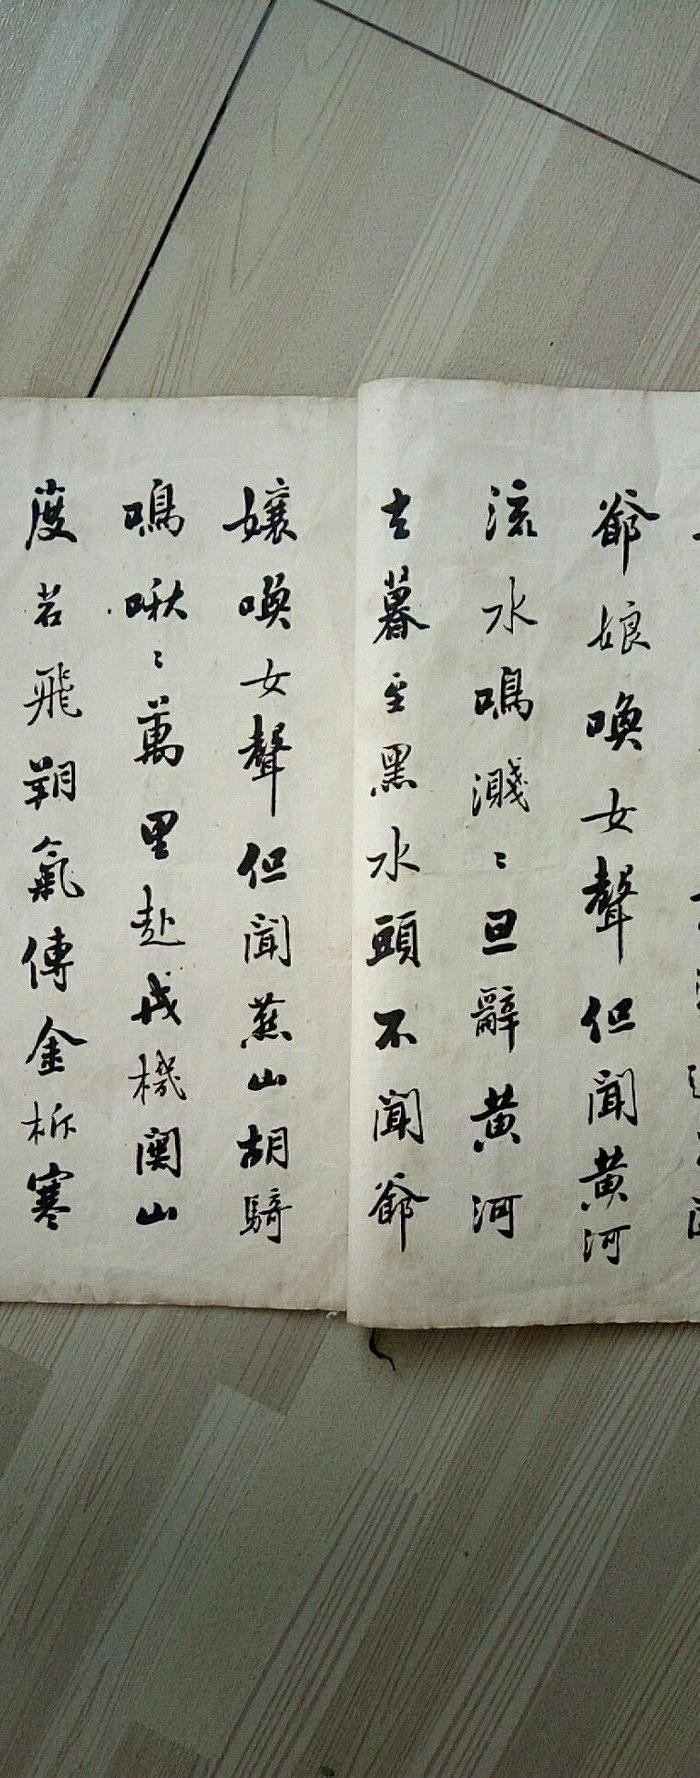 爺娘喚女聲但聞黃河
流水鳴濺〻旦辭黃河
去暮至黑水頭不聞爺
孃喚女聲但聞燕山胡騎
鳴啾〻萬里赴戎機關山
度若飛朔氣傳金柝寒